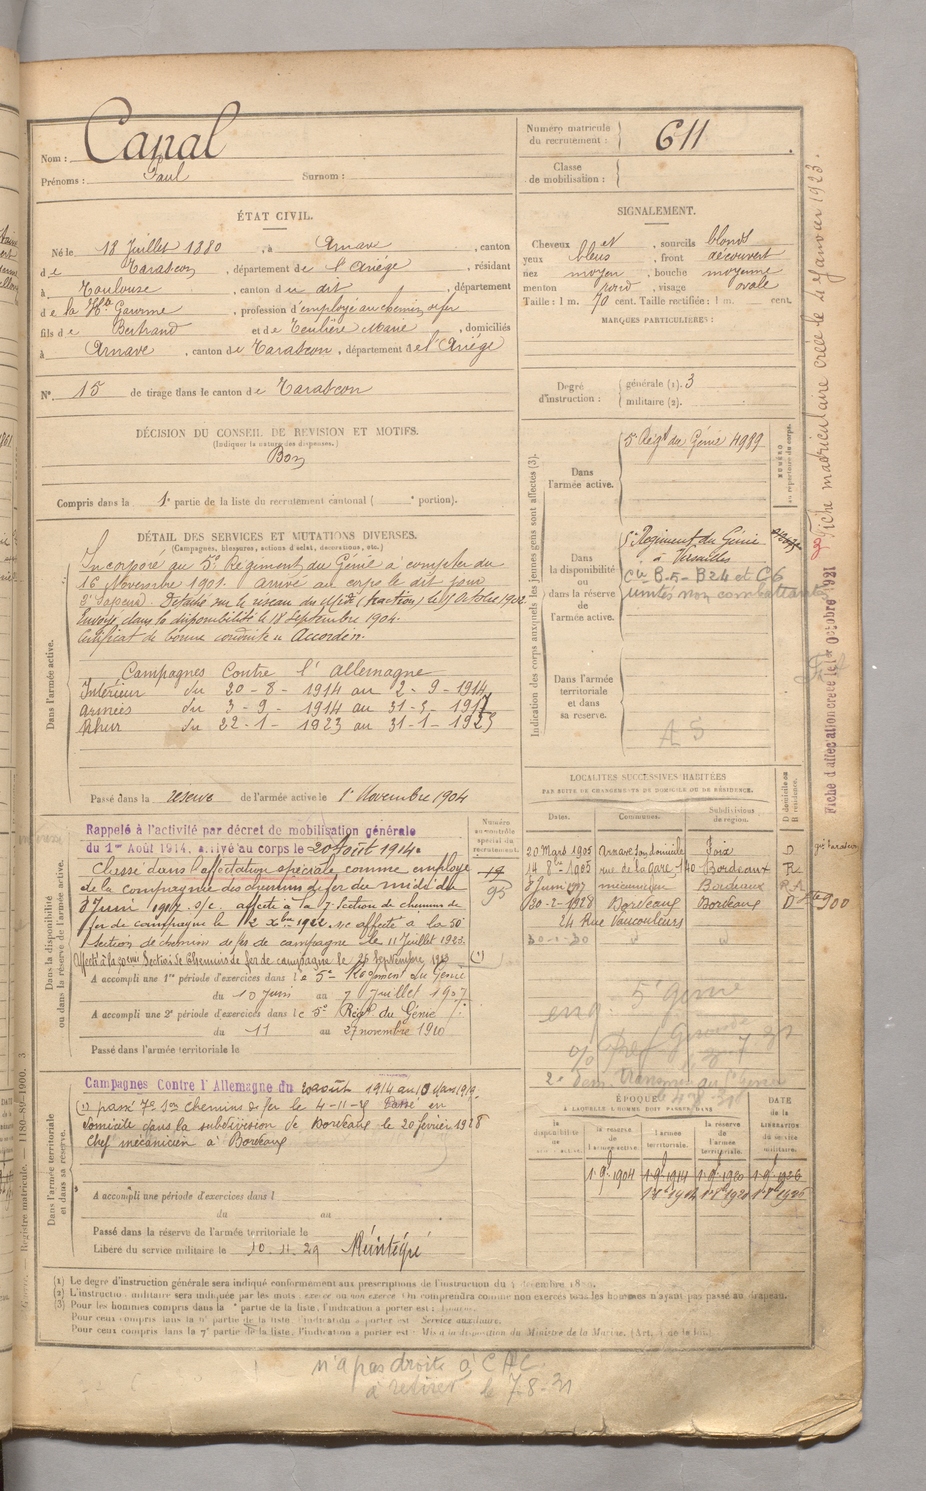 Nom : Canal
Prénoms : Paul Surnom :
Numéro matricule du recrutement : 611
Classe de mobilisation :
ÉTAT CIVIL.
Né le 18 Juillet 1880, à Arnave, canton
de Tarascon, département de l'Ariège, résidant
à Toulouse, canton du dit, département
de la Hte Garonne, profession d'employé au chemin de fer
fils de Bertrand et de Teulière Marie, domiciliés
à Arnave, canton de Tarascon, département de l'Ariège
N° 15 de tirage dans le canton de Tarascon
DÉCISION DU CONSEIL DE REVISION ET MOTIFS.
(Indiquer la nature des dispenses.)
Bon
Compris dans la 1e partie de la liste du recrutement cantonal ( e portion).
SIGNALEMENT.
Cheveux et sourcils blonds
yeux bleus, front découvert
nez moyen, bouche moyenne
menton rond, visage ovale
Taille : 1 m. 70 cent. Taille rectifiée : 1 m. cent.
MARQUES PARTICULIÈRES :
Degré d'instruction :
générale (1). 3
militaire (2).
DÉTAIL DES SERVICES ET MUTATIONS DIVERSES.
(Campagnes, blessures, actions d'éclat, décorations, etc.)
Dans l'armée active.
Incorporé au 5e Régiment du Génie à compter du
16 Novembre 1901. Arrivé au corps le dit jour
2e Sapeur. Détaché sur le réseau du Midi (traction) le Octobre 1902.
Envoyé dans la disponibilité le 18 Septembre 1904.
Certificat de bonne conduite « Accordé ».
Campagnes Contre l'Allemagne
Intérieur du 20-8-1914 au 2-9-1914
Armées du 3-9-1914 au 31-5-1917
Rhur du 22-1-1923 au 31-1-1923
Passé dans la réserve de l'armée active le 1er Novembre 1904
Indication des corps auxquels les jeunes gens sont affectés (3).
NUMÉRO au répertoire du corps.
Dans l'armée active.
5e Régt du Génie 4989
Dans la disponibilité ou dans la réserve de l'armée active.
5e Régiment du Génie
à Versailles
Cie B-5 - B24 et C6
unités non combattantes
Dans l'armée territoriale et dans sa réserve.
A5
Fiche matriculaire créée le 4 Janvier 1923.
Fiche d'affectation créée le 1er Octobre 1921
Dans la disponibilité ou dans la réserve de l'armée active.
Numéro au contrôle spécial du recrutement.
Rappelé à l'activité par décret de mobilisation générale
du 1er Août 1914, arrivé au corps le 20 Août 1914.
Classé dans l'affectation spéciale comme employé
de la compagnie des chemins de fer du midi du
8 Juin 1917. s/c. affecté à la 7e Section de chemins de
fer de campagne le 12 Xbre 1922. s/c affecté à la 50e
Section de chemins de fer de campagne le 11 Juillet 1923.
Affecté à la Section de Chemins de fer de campagne le 25 Septembre 1923 (1)
A accompli une 1re période d'exercices dans le 5e Régiment du Génie
du 10 Juin au 7 Juillet 1907
A accompli une 2e période d'exercices dans le 5e Régt du Génie
du 11 au 27 novembre 1910
Passé dans l'armée territoriale le
LOCALITÉS SUCCESSIVES HABITÉES
PAR SUITE DE CHANGEMENTS DE DOMICILE OU DE RÉSIDENCE.
Dates. Communes. Subdivisions de région. D domicile ou R résidence.
20 Mars 1905 Arnave son domicile Foix D
14 8bre 1905 rue de la Gare 140 Bordeaux R
8 Juin 1917 mécanicien Bordeaux RA
20-2-1928 Bordeaux Bordeaux D
24 Rue Vaucouleurs
5e Génie
Dans l'armée territoriale et dans sa réserve.
Campagnes Contre l'Allemagne du 20 août 1914 au 10 Mars 1919.
(1) passé 7e Son chemins de fer le 4-11-5 Passé en
domicile dans la subdivision de Bordeaux le 20 février 1928
Chef mécanicien à Bordeaux
A accompli une période d'exercices dans l
du au
Passé dans la réserve de l'armée territoriale le
Libéré du service militaire le 10.11.29 Réintégré
ÉPOQUE
À LAQUELLE L'HOMME DOIT PASSER DANS
DATE de la LIBÉRATION du service militaire.
la disponibilité de l'armée active. la réserve de l'armée active. l'armée territoriale. la réserve de l'armée territoriale.
1er 9bre 1904 1er 9bre 1914 1er 9bre 1920 1er 9bre 1926
Registre matricule.
(1) Le degré d'instruction générale sera indiqué conformément aux prescriptions de l'instruction du
(2) L'instruction militaire sera indiquée par les mots : exercé ou non exercé. On comprendra comme non exercés tous les hommes n'ayant pas passé au drapeau.
(3) Pour les hommes compris dans la e partie de la liste, l'indication à porter est :
Pour ceux compris dans la 6e partie de la liste, l'indication à porter est : Service auxiliaire.
Pour ceux compris dans la 7e partie de la liste, l'indication à porter est : Mis à la disposition du Ministre de la Marine.
n'a pas droite à CAC.
à retirer le 7-8-31